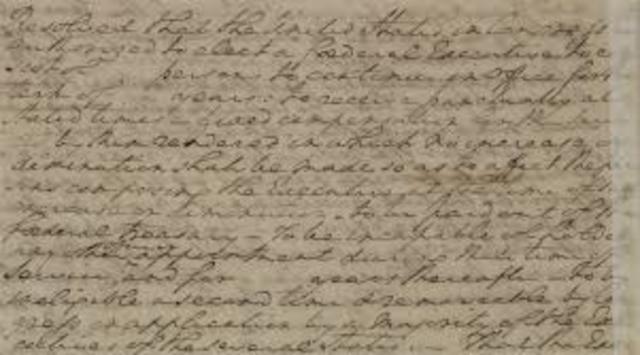 Resolved that the United States in Congress
authorized to elect a federal Executive to con
sist of persons to continue in office for
term of years; to receive punctually at
stated times a fixed compensation
by them rendered in which no increase or
diminution shall be made so as to affect the per
sons composing the Executive at the time
increase or diminution, to be paid out of the
Federal treasury — to be incapable of holding
any other appointment during their time of
service and for years thereafter to be
ineligible a second time & removeable by Con
gress on application by a majority of the Ex
ecutives of the several States. — That the Ex